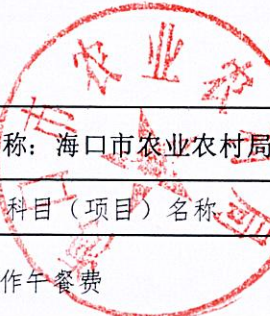 市农业农村局
称：海口市农业农村局
科目（项目）名称
作午餐费